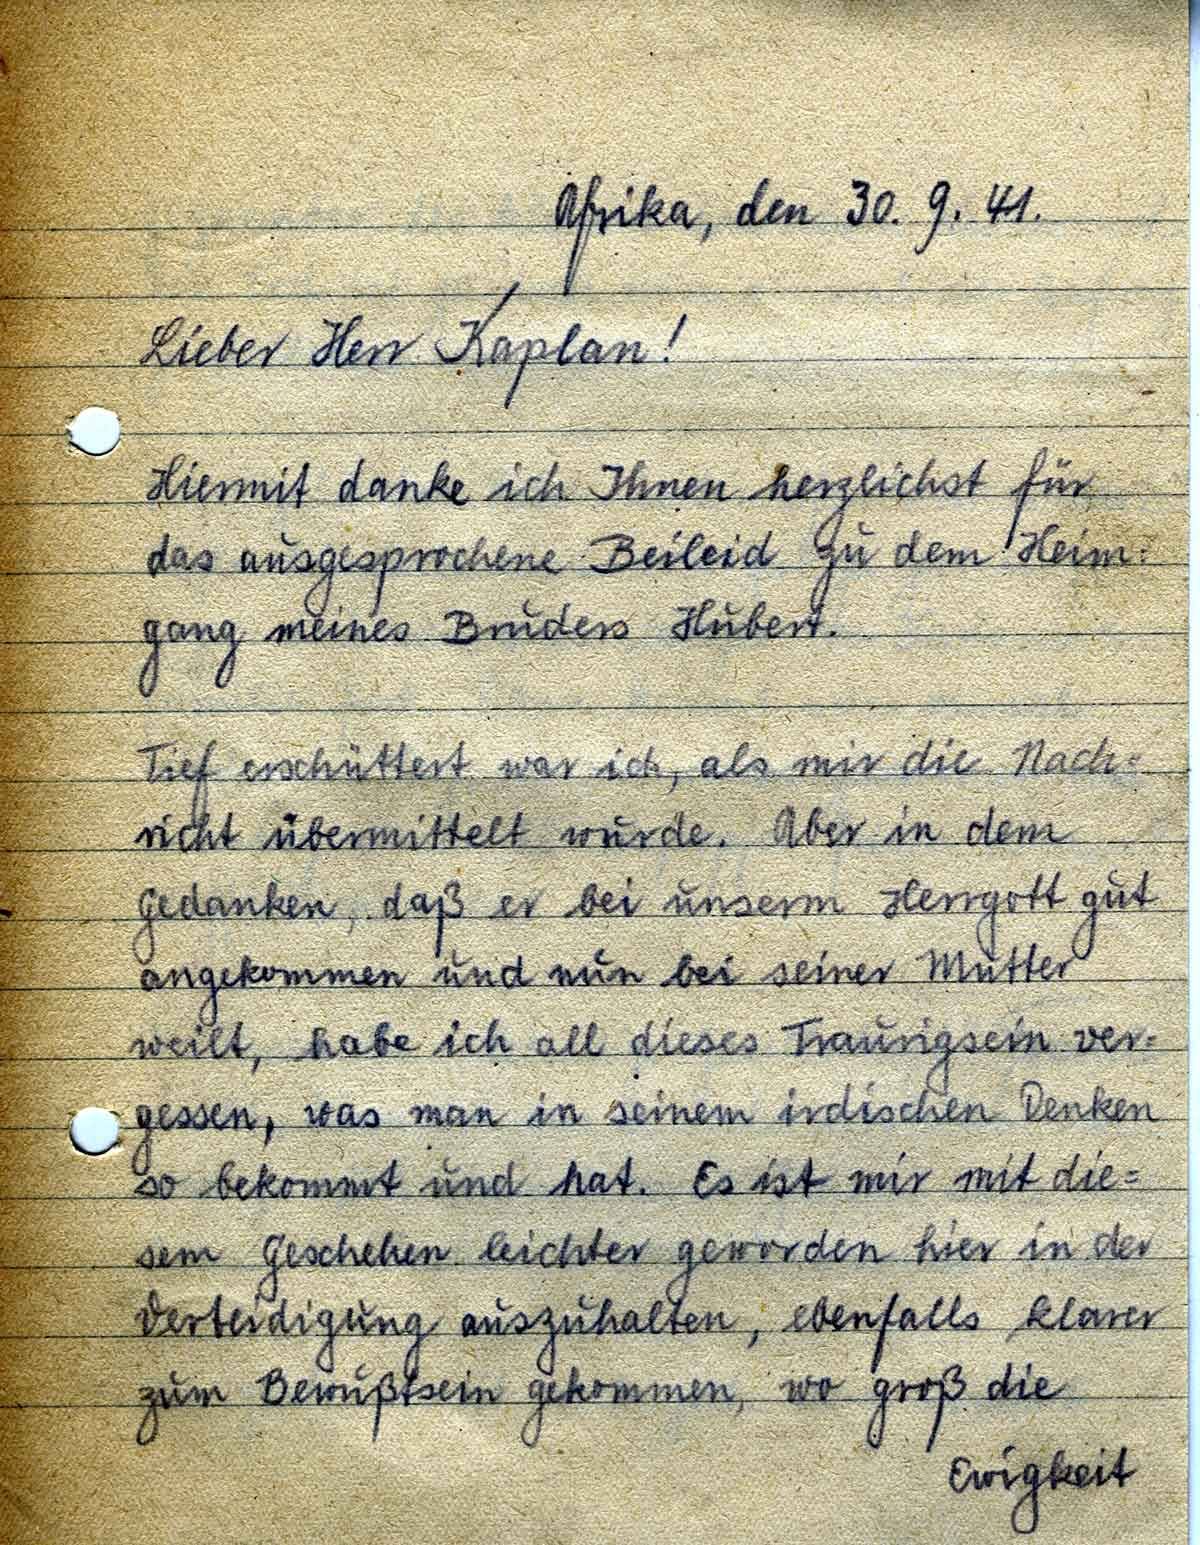 Afrika, den 30. 9. 41.
Lieber Herr Kaplan!
Hiermit danke ich Ihnen herzlichst für
das ausgesprochene Beileid zu dem Heim=
gang meines Bruders Hubert.
Tief erschüttert war ich, als mir die Nach=
richt übermittelt wurde. Aber in dem
Gedanken, daß er bei unserm Herrgott gut
angekommen und nun bei seiner Mutter
weilt, habe ich all dieses Traurigsein ver=
gessen, was man in seinem irdischen Denken
so bekommt und hat. Es ist mir mit die=
sem Geschehen leichter geworden hier in der
Verteidigung auszuhalten, ebenfalls klarer
zum Bewußtsein gekommen, wo groß die
Ewigkeit